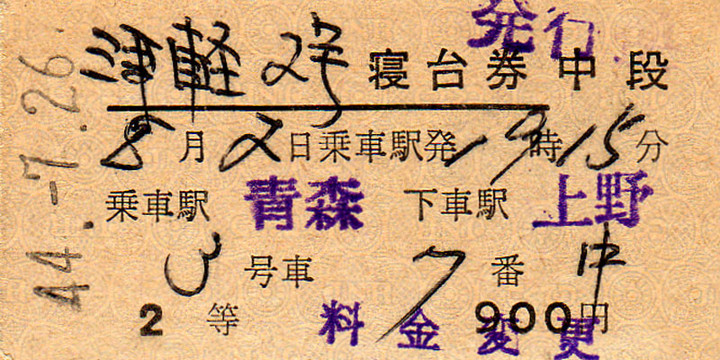 発行
津軽 2号 寝台券 中段
8月2日乗車駅発19時15分
乗車駅 青森 下車駅 上野
3号車 7番 中
2等 900円
料金変更
44.-7.26